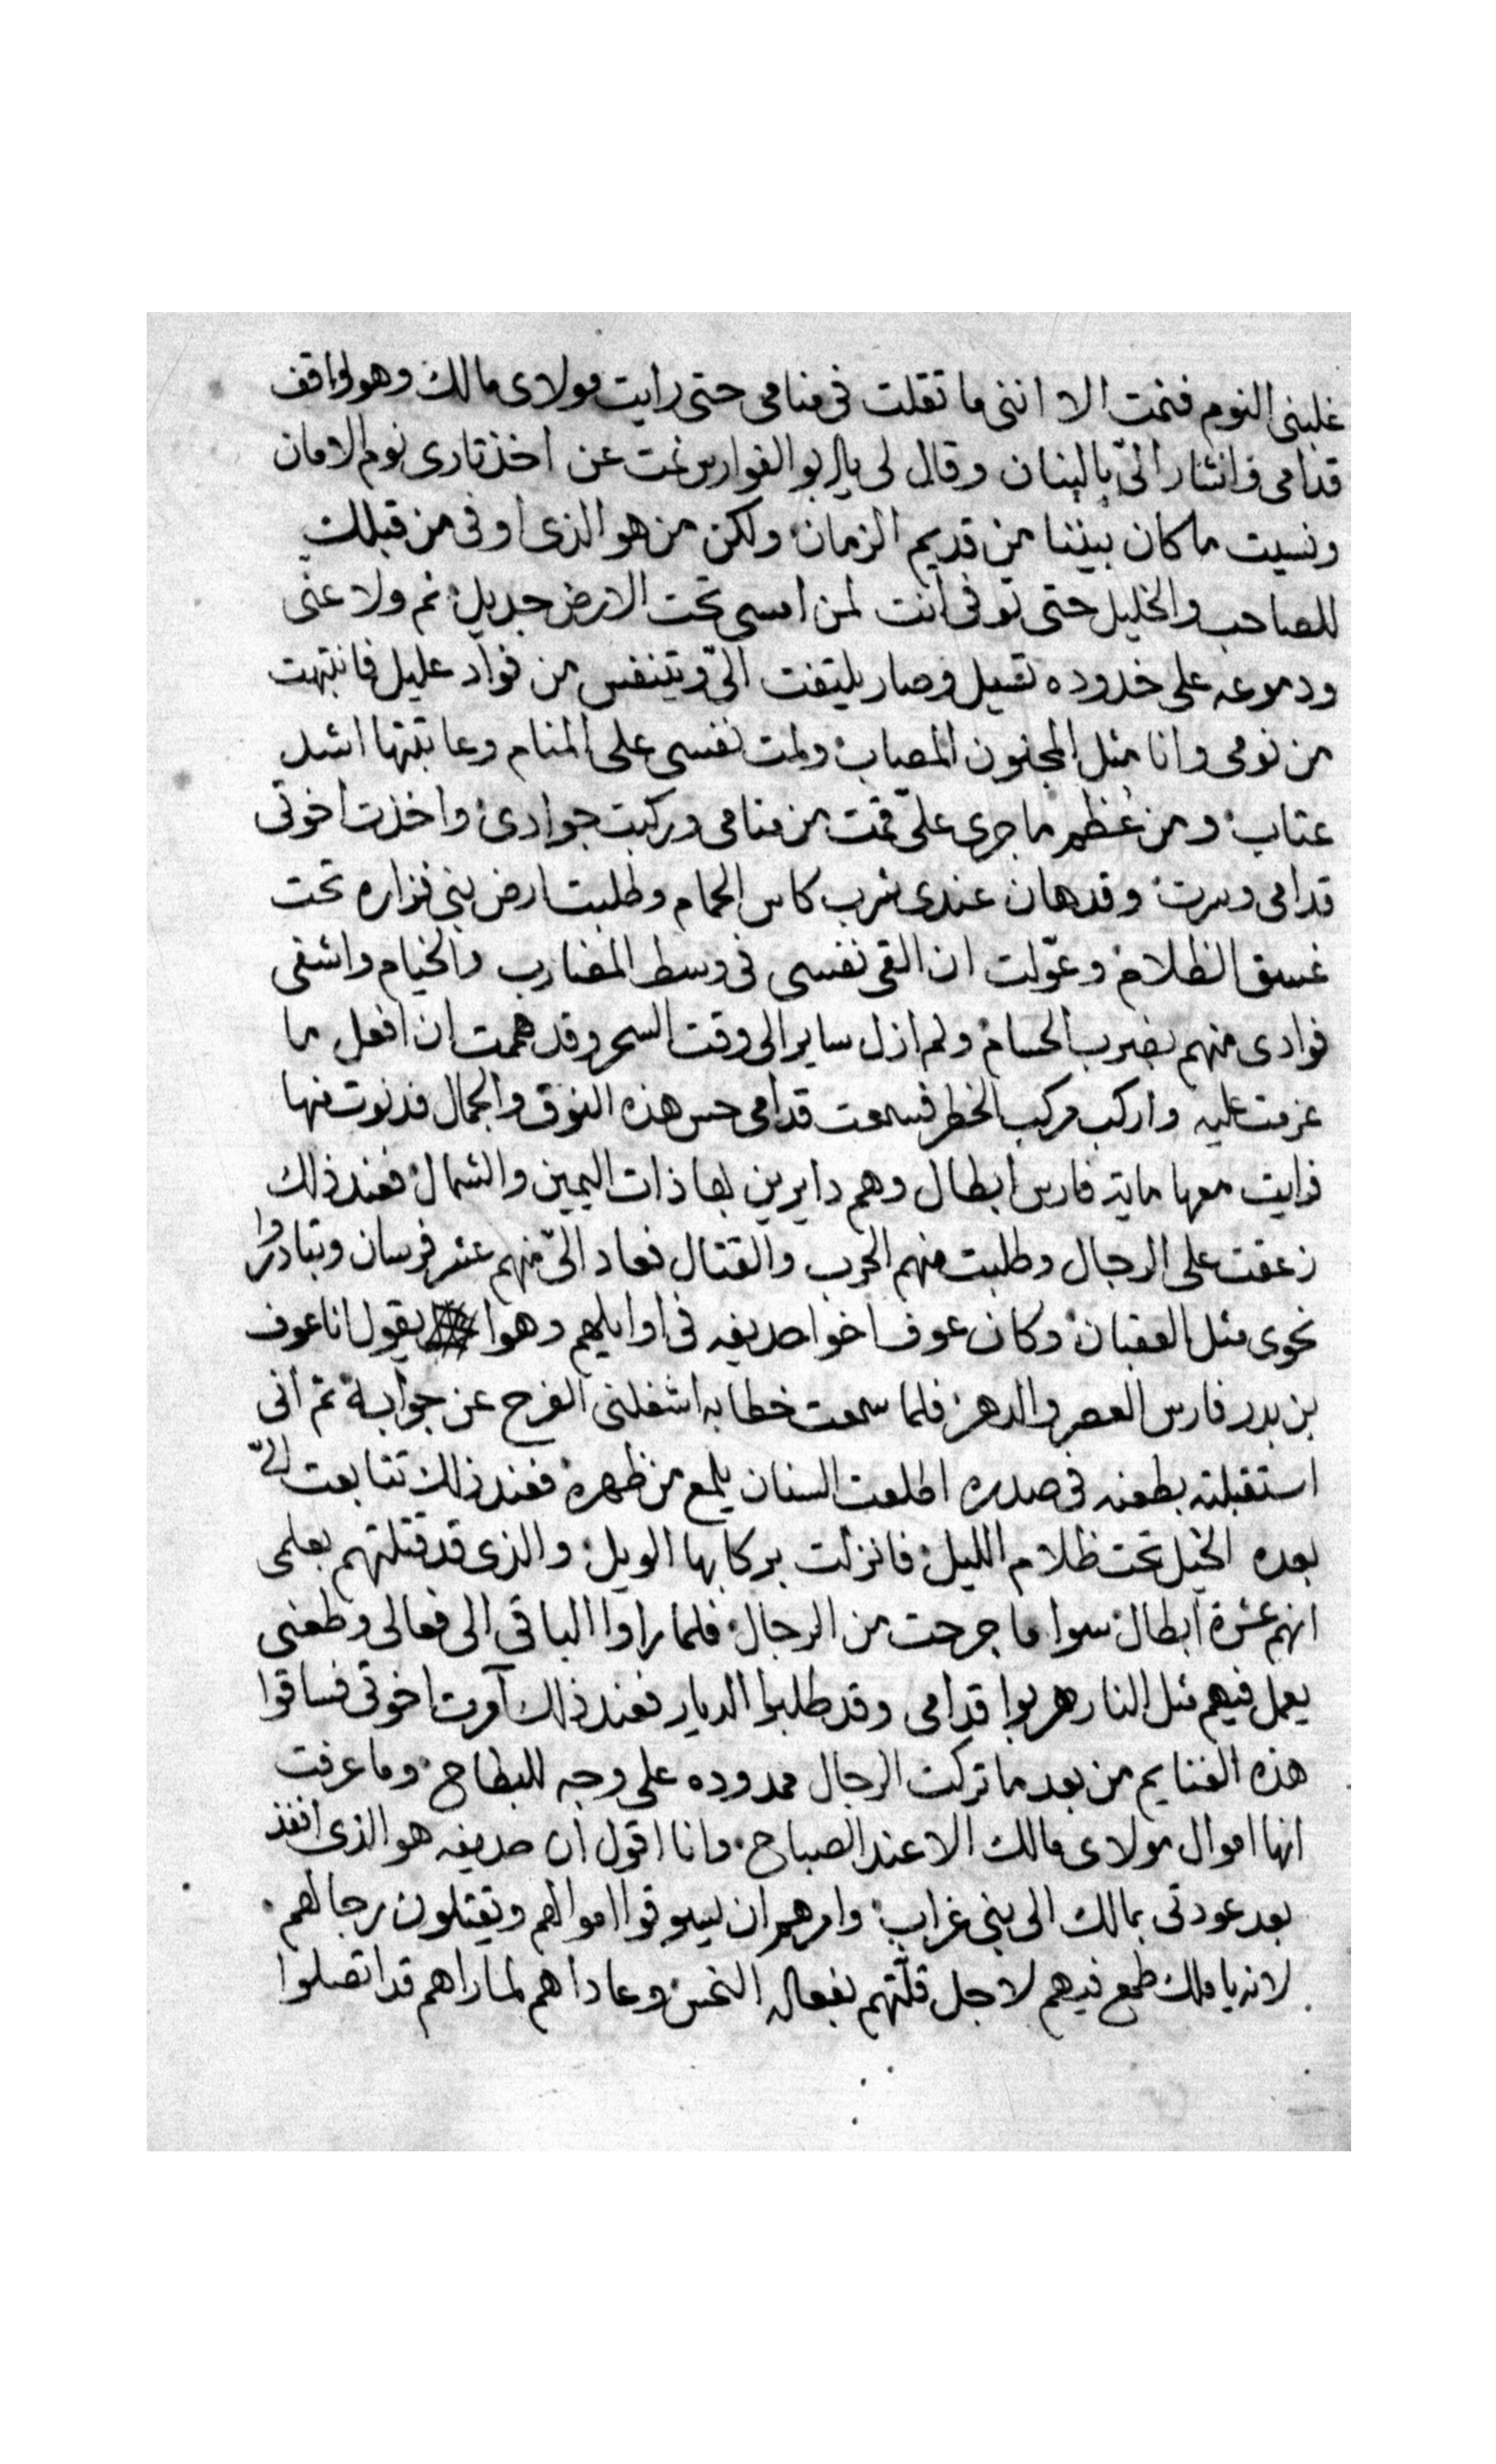 غلبنى النوم فنمت الا اننى ما تقلت فى منامى حتى رايت مولاى مالك وهو واقف
قدامى وانشار الىّ بالبنان وقال لى يابو الفوارس نمت عن اخذ تارى نوم الامان
ونسيت ما كان بيننا من قديم الزمان ولكن من هو الذى اوفى من قبلك
للصاحب والخليل حتى توفى انت لمن امسى تحت الارض جديل ثم ولا عنى
ودموعه على خدوده تسيل وصار يلتفت الىّ ويتنفس من فواد عليل فانتبهت
من نومى وانا مثل المجنون المصاب ولمت نفسى على المنام وعاتبتها اشد
عتاب ومن عُظم ما جرى علىّ قمت من منامى وركبت جوادى واخذت اخوتى
قدامى وسرت وقد هان عندى شرب كاس الحمام وطلبت ارض بنى فزاره تحت
غسق الظلام وعوّلت ان القى نفسى فى وسط المضارب والخيام واشفى
فوادى منهم بضرب الحسام ولم ازل ساير الى وقت السحر وقد هممت ان افعل ما
عزمت عليه واركب مركب الخطر فسمعت قدامى حس هذه النوق والجمال فدنوت منها
فرايت معها ماية فارس ابطال وهم دايرين بها ذات اليمين والشمال فعند ذلك
زعقت على الرجال وطلبت منهم الحرب والقتال فعاد الىّ منهم عشر فرسان وتبادروا
نحوى مثل العقبان وكان عوف اخوا حديفه فى اوايلهم وهوا يقول انا عوف
بن بدر فارس العصر والدهر فلما سمعت خطابه اشغلنى الفرح عن جوابه ثم انى
استقبلته بطعنه فى صدره اطلعت السنان يلمع من ظهره فعند ذلك تتابعت الىّ
بعده الخيل تحت ظلام الليل فانزلت بركابها الويل والذى قد قتلتهم بعلمى
انهم عشرة ابطال سوا ما جرحت من الرجال فلما راوا الباقى الى فعالى وطعنى
يعمل فيهم مثل النار هربوا قدامى وقد طلبوا الديار فعند ذلك امرت اخوتى فساقوا
هذه الغنايم من بعد ما تركت الرجال ممدوده على وجه البطاح وما عرفت
انها اموال مولاى مالك الا عند الصباح وانا اقول ان حديفه هو الذى انفذ
بعد عودتى بمالك الى بنى غراب وامرهم ان يسوقوا اموالهم ويقتلون رجالهم
لانه يا ملك طمع فيهم لاجل قلّتهم بفعاله النحس وعاداهم لما راهم قد اتصلوا